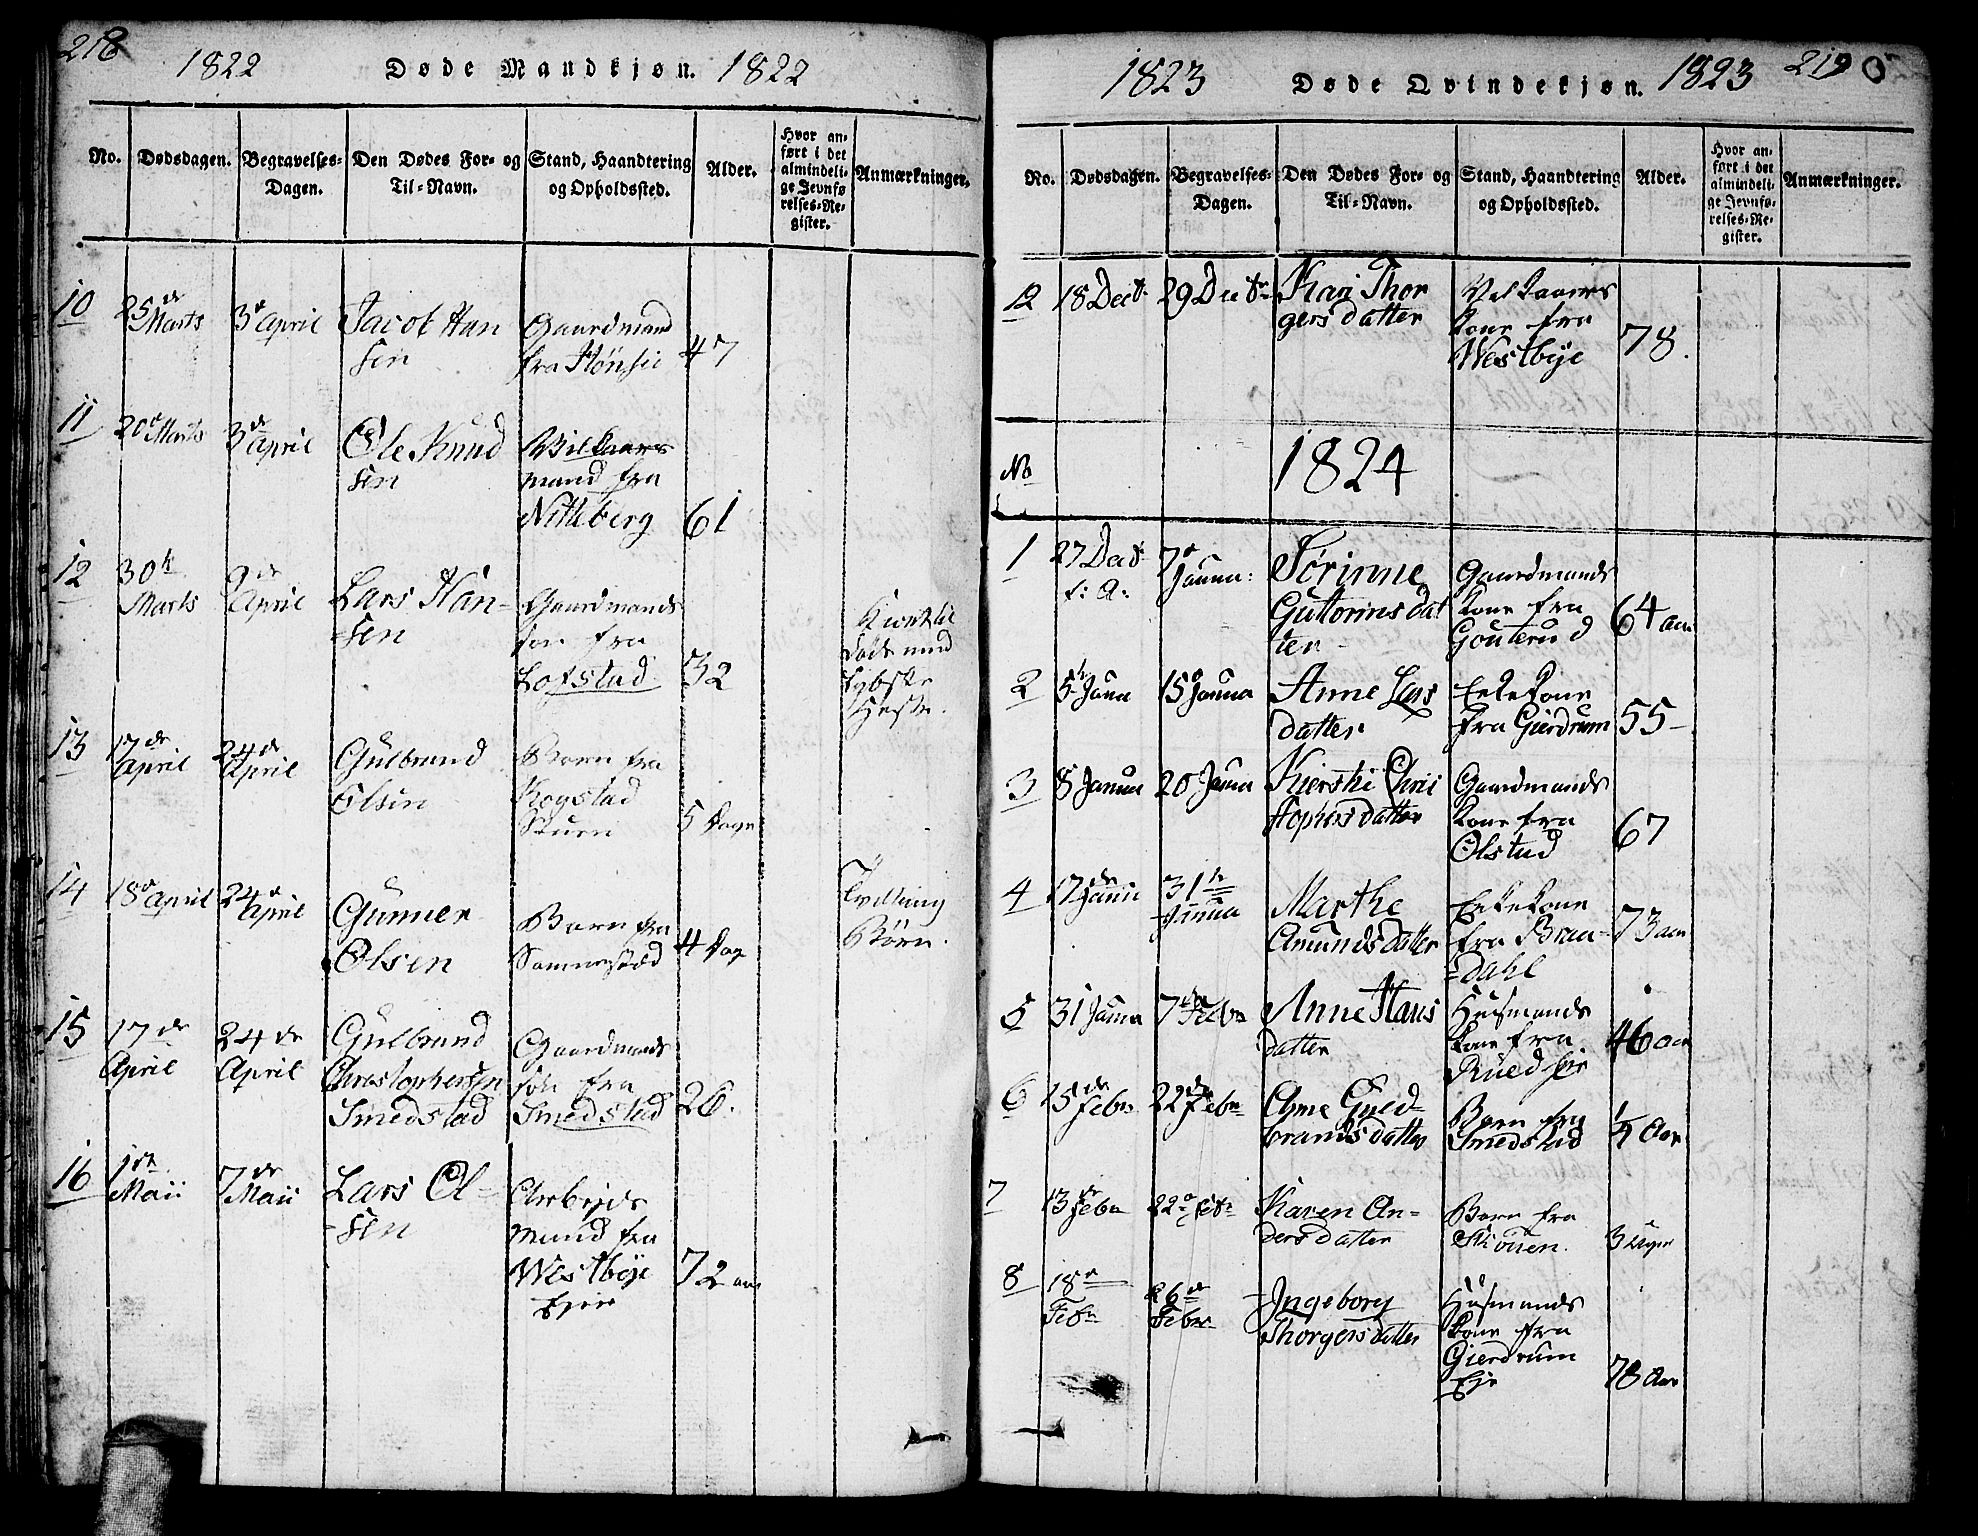 218
1822 Døde Mandkjøn. 1822
No. Dødsdagen. Begravelses-Dagen. Den Dødes For- og Til-Navn. Stand, Haandtering og Opholdssted. Alder. Hvor anført i det almindelige Jevnførelses-Register. Anmærkninger.
10 25de Marts 3de April Jacob Han
sen Gaardmand
fra Hønsie 47
11 20de Marts 3de April Ole Knud
sen Vilkaars
mand fra
Nitteberg 61
12 30te Marts 9de April Lars Han-
sen Gaardmands
søn fra
Lofstad 32
døde med
13 17de April 24de April Gulbrand
Olsen Barn fra
Kogstad
5 Dage
14 18de April 24de April Gunner
Olsen Barn fra
4 Dag
Tvilling
Børn.
15 17de April 24de April Gulbrand
Christophersen
Smedstad Gaardmands
søn fra
Smedstad 26.
16 1ste Maii 7de Maii Lars Ol-
sen Arbejds
mand fra
Westbye
Eyer 72 aar
219
1823 Døde Qvindekjøn. 1823
No. Dødsdagen. Begravelses-Dagen. Den Dødes For- og Til-Navn. Stand, Haandtering og Opholdssted. Alder. Hvor anført i det almindelige Jevnførelses-Register. Anmærkninger.
12 18 Decb. 29 Decbr Kari Thor
gers datter Vilkaars
kone fra
Westbye 78.
No 1824
1 27 Decb.
f: A: 7de Janua: Sørinne
Guttorms dat
ter Gaardmands
kone fra
Gouterud 64 aar
2 5te Janu 15de Janua Anne Lars
datter Enkekone
fra Gierdrum 55
3 8 Janua 20 Janua Kiersti Chri
stophers datter Gaardmands
kone fra
Olstad 67
4 17de Janu 31te Janua Marthe
Amunds datter Enkekone
fra Bran-
dahl 73 aar
5 31 Janua 7de Febr Anne Hans
datter Husmands
kone fra
46 aar
6 15de Febr 22de Febr Anne Guld-
brands datter Barn fra
Smedstad 1/4 Aar
7 13de Febr 22de Febr Karen An-
ders datter Barn fra
Skouen. 3 Uger
8 18de Febr 26de Febr Ingeborg
Thorgers datter Husmands
kone fra
Gierdrum
Eje 78 Aar